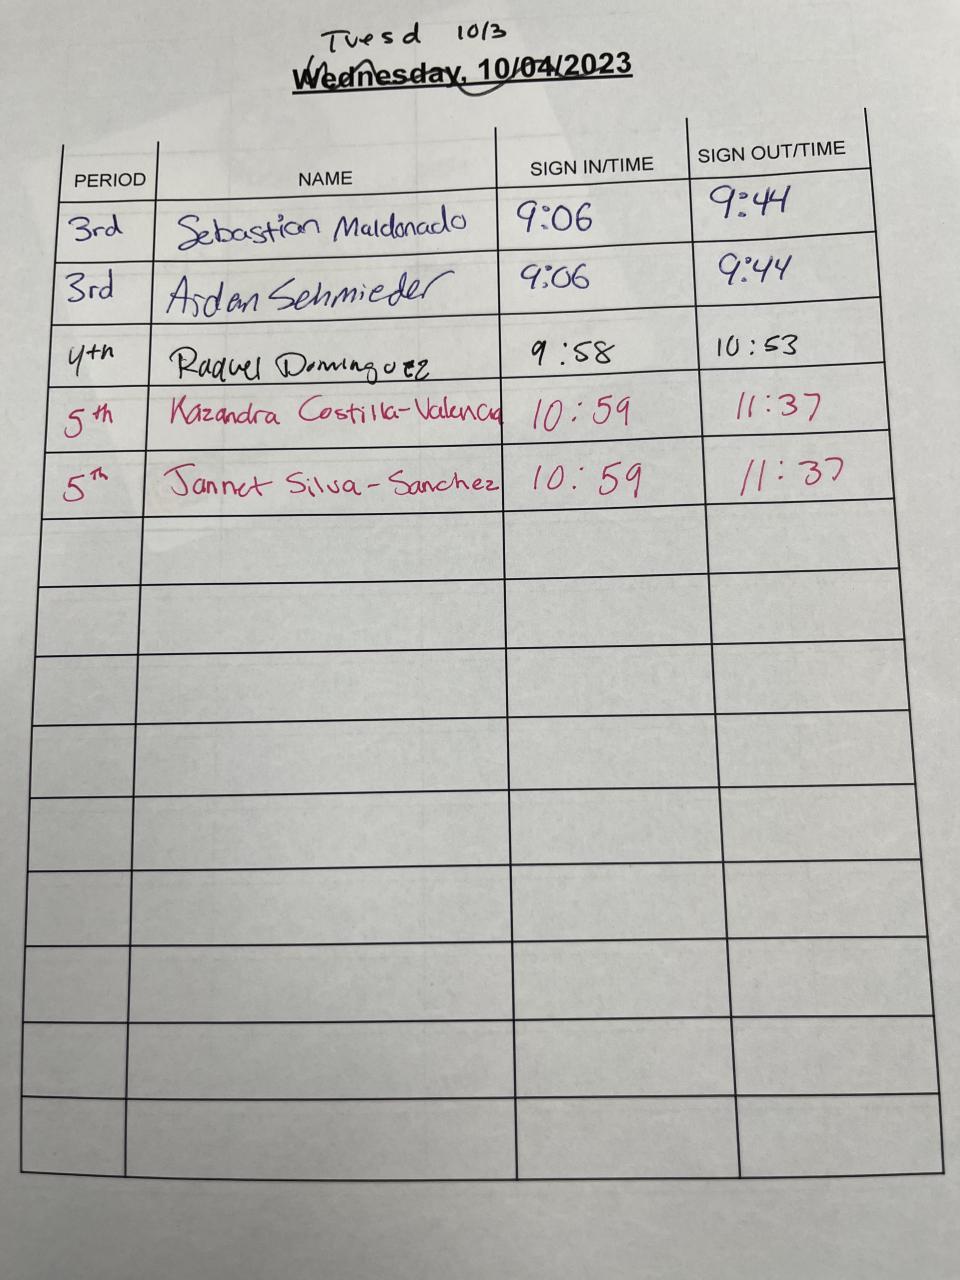 Tuesd 10/3
Wednesday, 10/04/2023
PERIOD NAME SIGN IN/TIME SIGN OUT/TIME
3rd Sebastian Maldonado 9:06 9:44
3rd Aidan Sehmieder 9:06 9:44
4th Raquel Dominguez 9:58 10:53
5th Kazandra Costilla-Valencia 10:59 11:37
5th Jannet Silva-Sanchez 10:59 11:37